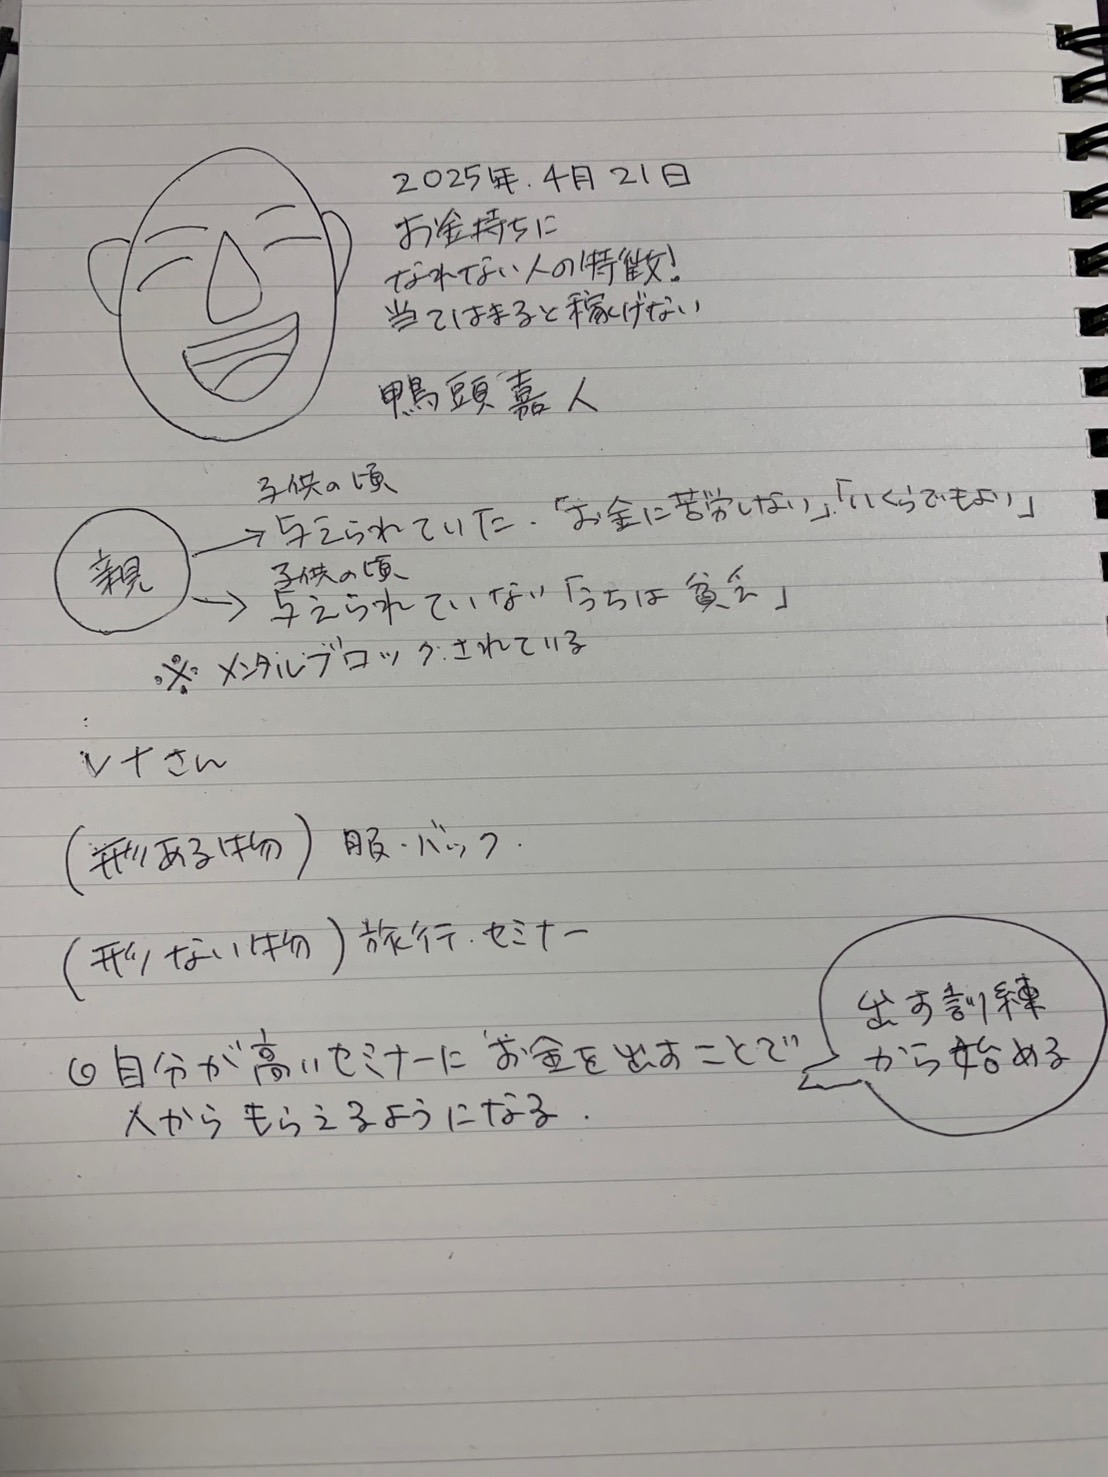 2025年.4月21日
お金持ちに
なれない人の特徴!
当てはまると稼げない
鴨頭嘉人
子供の頃
親 → 与えられていた.「お金に苦労しない」.「いくらでもよい」
子供の頃
→ 与えられていない「うちは貧乏」
※メンタルブロックされている
レナさん
(形ある物) 服.バック.
(形ない物) 旅行.セミナー
出す訓練
から始める
◎自分が高いセミナーにお金を出すことで
人からもらえるようになる.